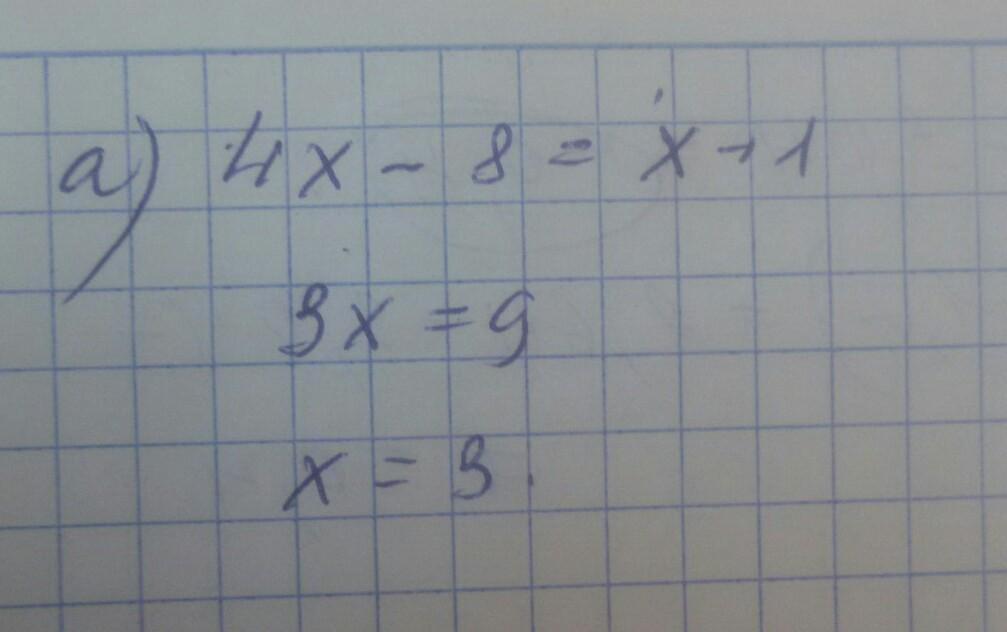 а) 4x - 8 = x + 1
3x = 9
x = 3.